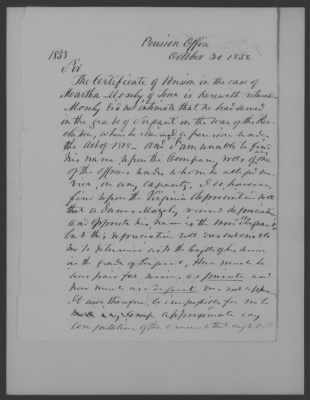 Pension Office
October 30 1850
1853
Sir
The Certificate of Pension in the case of
Martha Mosely of Tenn is herewith returned
Mosely did not intimate that he had served
in the grade of Sergeant in the War of the Rev-
olution, when he claimed a pension under
the Act of 1818 - and I am unable to find
his name upon the Company rolls of any
of the officers under whom he alleged ser-
vice, in any capacity. I do, however,
find upon the Virginia depreciation roll
that a James Mosely received depreciation
and opposite his name is the word Sergeant
But this depreciation roll does not enable
me to determine as to the length of his service
in the grade of Sergeant, How much he
was paid for services as private and
how much as Sergeant does not appear
It will therefore be impossible for me to
make any approximate any
computation of the amount that ought